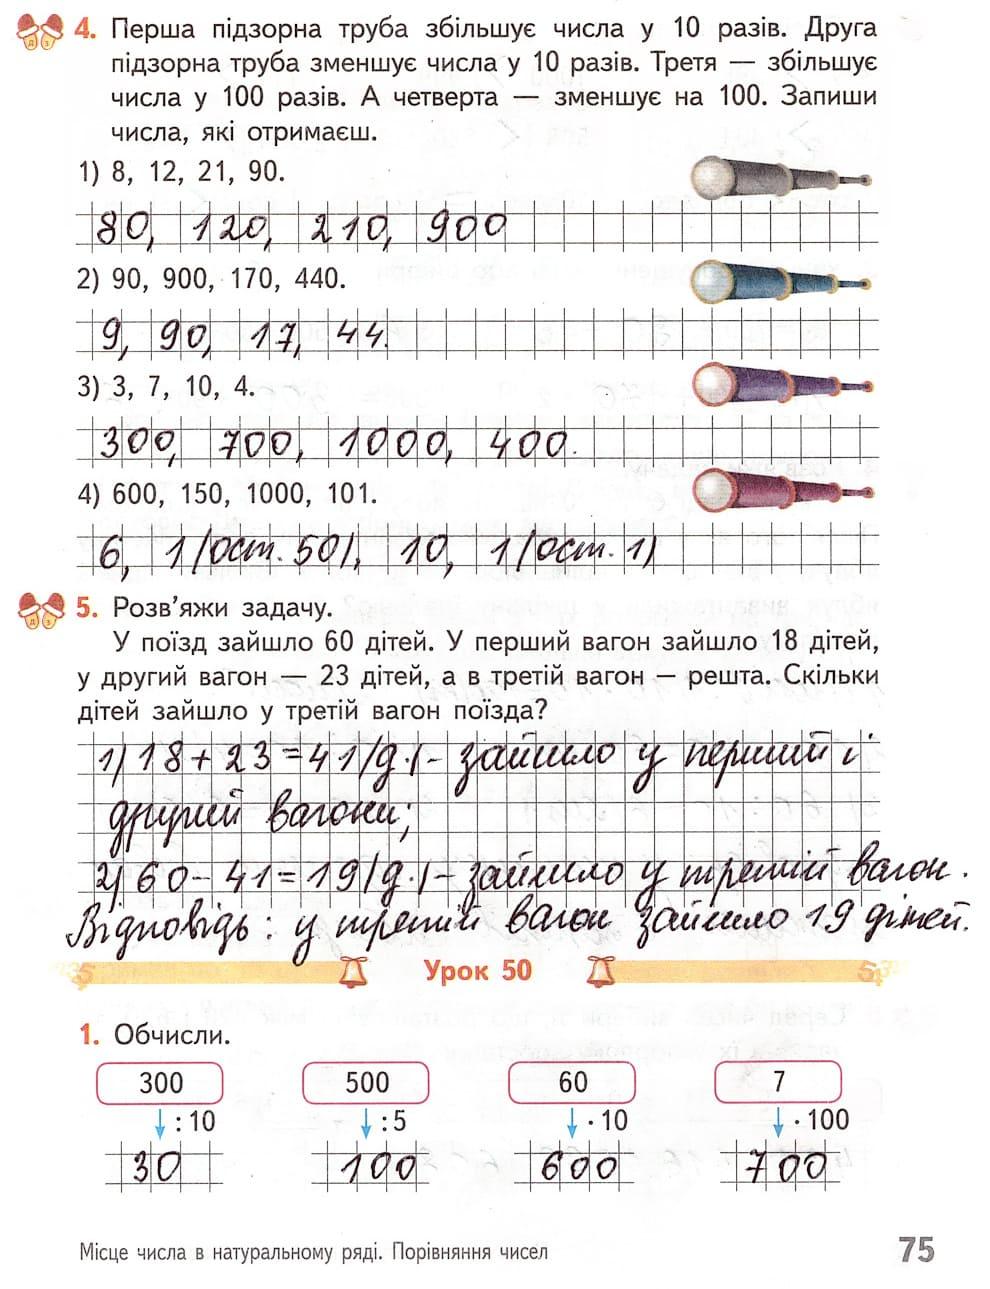 4. Перша підзорна труба збільшує числа у 10 разів. Друга
підзорна труба зменшує числа у 10 разів. Третя — збільшує
числа у 100 разів. А четверта — зменшує на 100. Запиши
числа, які отримаєш.
1) 8, 12, 21, 90.
80, 120, 210, 900
2) 90, 900, 170, 440.
9, 90, 17, 44.
3) 3, 7, 10, 4.
300, 700, 1000, 400.
4) 600, 150, 1000, 101.
6, 1(ост. 50), 10, 1(ост. 1)
5. Розв'яжи задачу.
У поїзд зайшло 60 дітей. У перший вагон зайшло 18 дітей,
у другий вагон — 23 дітей, а в третій вагон — решта. Скільки
дітей зайшло у третій вагон поїзда?
1) 18 + 23 = 41 (д.) - зайшло у перший і
другий вагони;
2) 60 - 41 = 19 (д.) - зайшло у третій вагон.
Відповідь: у третій вагон зайшло 19 дітей.
Урок 50
1. Обчисли.
300 500 60 7
:10 :5 ·10 ·100
30 100 600 700
Місце числа в натуральному ряді. Порівняння чисел 75